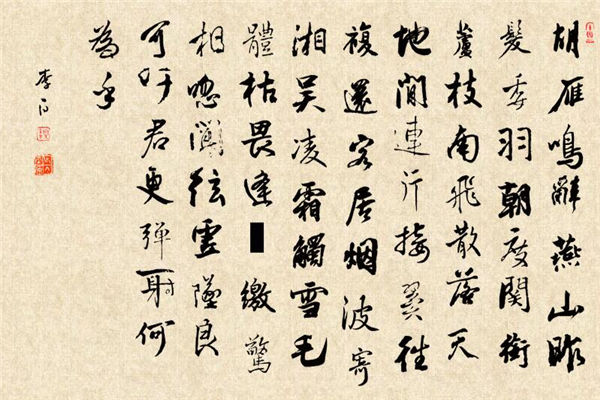 胡雁鳴辭燕山昨
髮委羽朝度関銜
蘆枝南飛散落天
地間連行接翼往
複還客居烟波寄
湘吴凌霜觸雪毛
體枯畏逢■繳驚
相唿聞弦虛墜良
可吁君更彈射何
為乎
李白